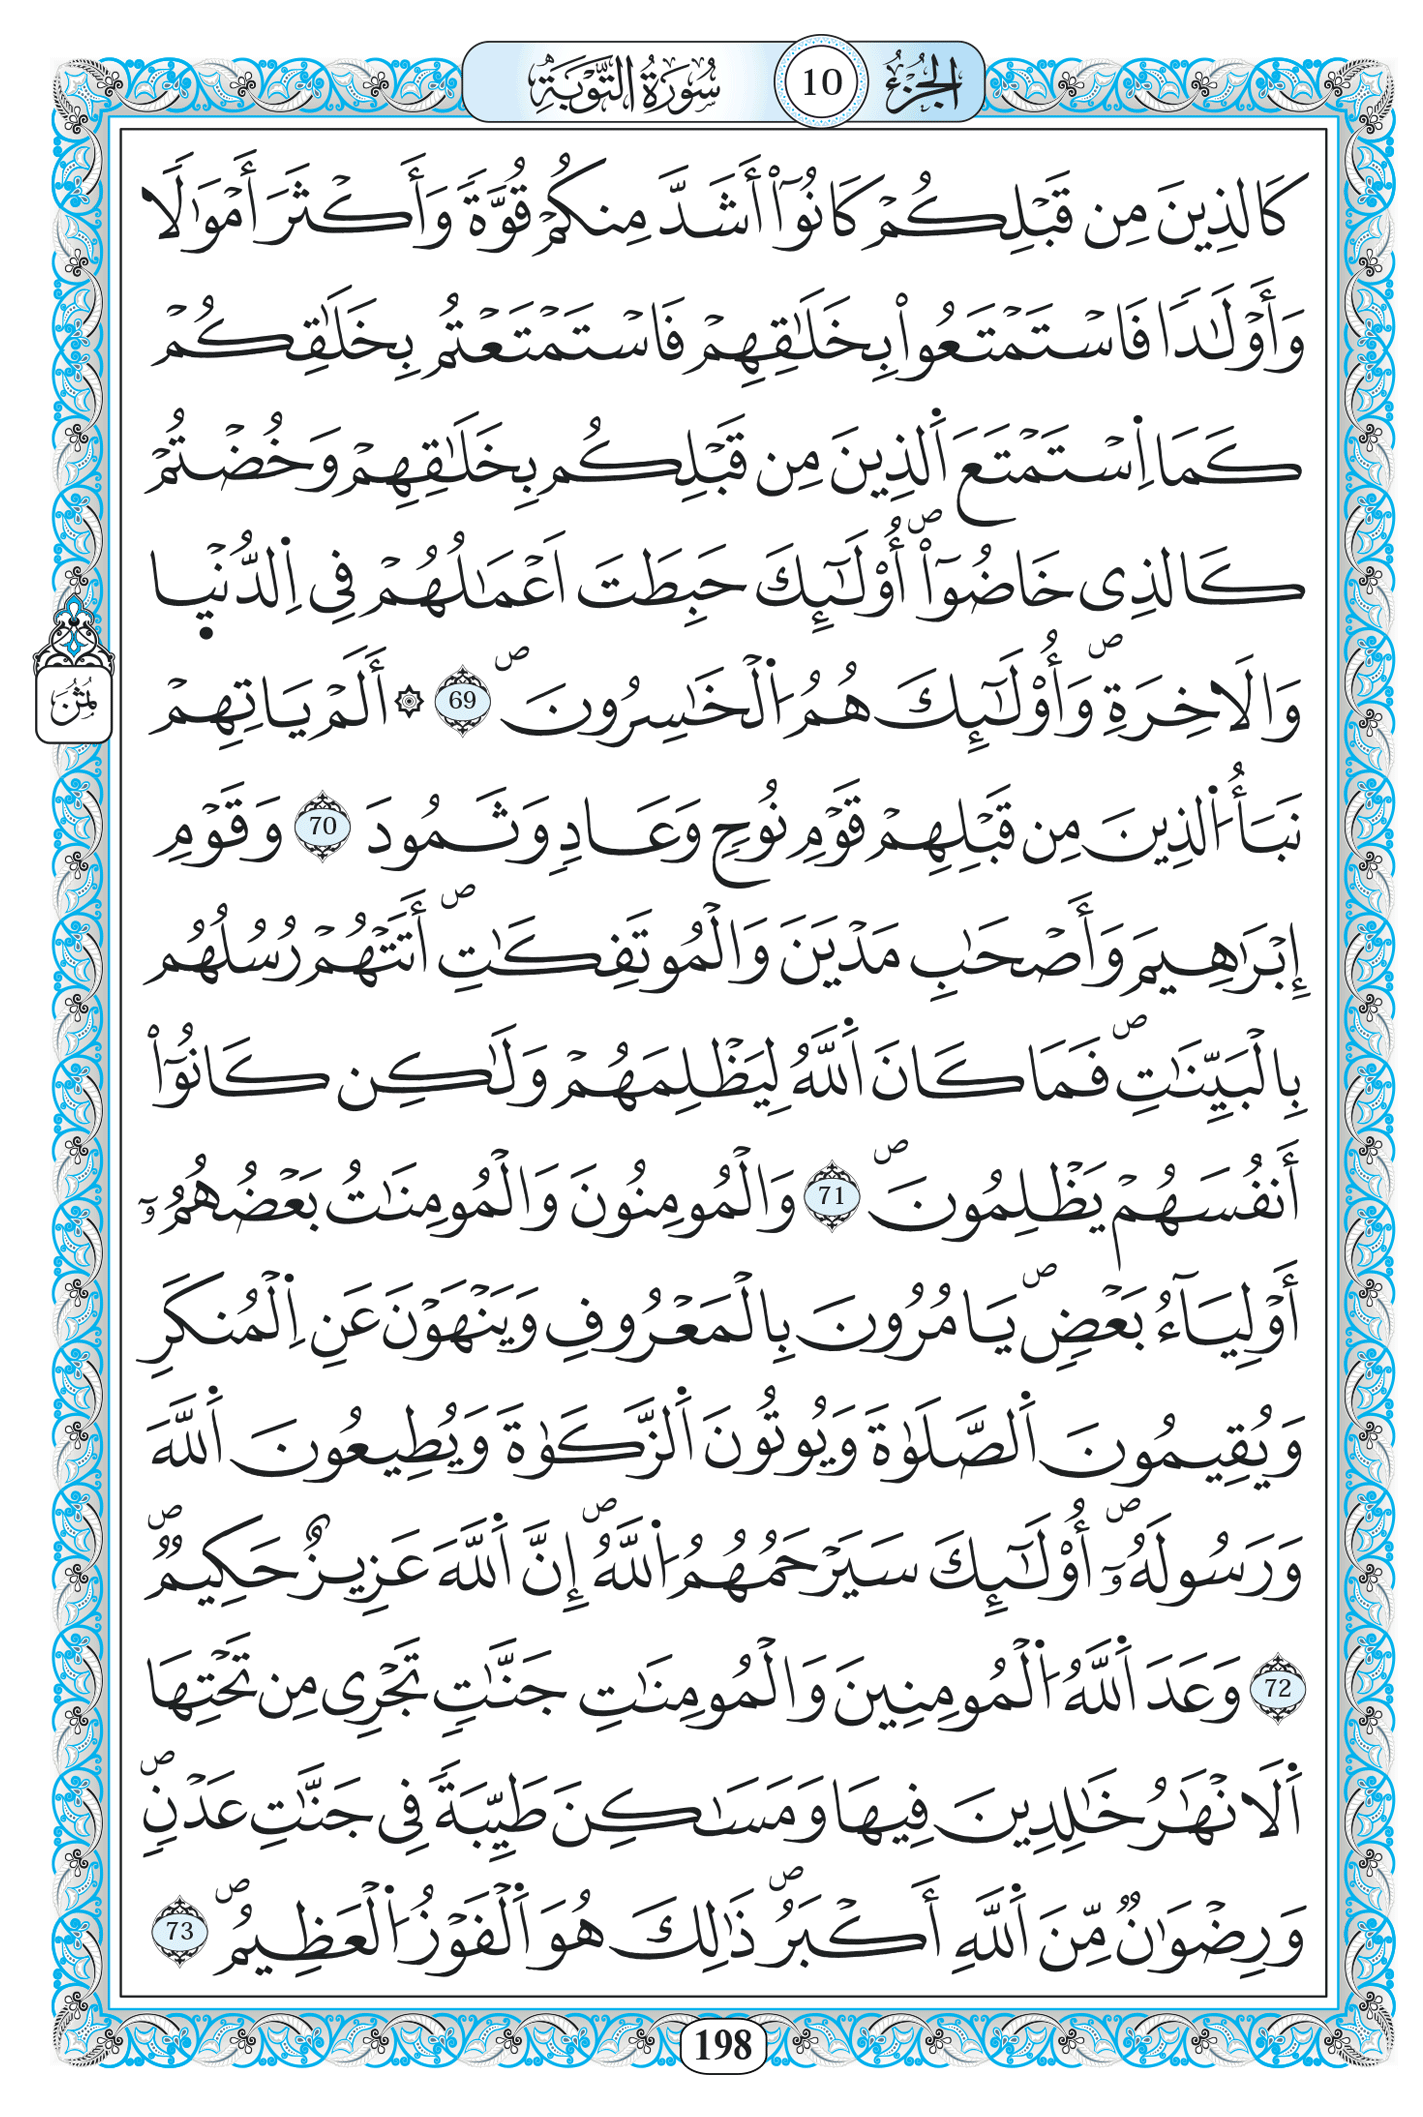 الجُزْءُ 10 سُورَةُ التَّوْبَةِ
كَالذِينَ مِن قَبْلِكُمْ كَانُوٓاْ أَشَدَّ مِنكُمْ قُوَّةً وَأَكْثَرَ أَمْوَٰلًا
وَأَوْلَٰدًا فَاسْتَمْتَعُواْ بِخَلَٰقِهِمْ فَاسْتَمْتَعْتُم بِخَلَٰقِكُمْ
كَمَا اَ۪سْتَمْتَعَ اَ۬لذِينَ مِن قَبْلِكُم بِخَلَٰقِهِمْ وَخُضْتُمْ
كَالذِى خَاضُوٓاْۖ أُوْلَٰٓئِكَ حَبِطَتَ اَعْمَٰلُهُمْ فِى اِ۬لدُّنْي۪ا
وَالَاخِرَةِۖ وَأُوْلَٰٓئِكَ هُمُ اُ۬لْخَٰسِرُونَۖ 69 ۞ أَلَمْ يَاتِهِمْ
نَبَأُ اُ۬لذِينَ مِن قَبْلِهِمْ قَوْمِ نُوحٍ وَعَادٍ وَثَمُودَ 70 وَقَوْمِ
إِبْرَٰهِيمَ وَأَصْحَٰبِ مَدْيَنَ وَالْمُوتَفِكَٰتِۖ أَتَتْهُمْ رُسُلُهُم
بِالْبَيِّنَٰتِۖ فَمَا كَانَ اَ۬للَّهُ لِيَظْلِمَهُمْ وَلَٰكِن كَانُوٓاْ
أَنفُسَهُمْ يَظْلِمُونَۖ 71 وَالْمُومِنُونَ وَالْمُومِنَٰتُ بَعْضُهُمُۥٓ
أَوْلِيَآءُ بَعْضٍۖ يَامُرُونَ بِالْمَعْرُوفِ وَيَنْهَوْنَ عَنِ اِ۬لْمُنكَرِ
وَيُقِيمُونَ اَ۬لصَّلَوٰةَ وَيُوتُونَ اَ۬لزَّكَوٰةَ وَيُطِيعُونَ اَ۬للَّهَ
وَرَسُولَهُۥٓۖ أُوْلَٰٓئِكَ سَيَرْحَمُهُمُ اُ۬للَّهُۖ إِنَّ اَ۬للَّهَ عَزِيزٌ حَكِيمٌۖ
72 وَعَدَ اَ۬للَّهُ اُ۬لْمُومِنِينَ وَالْمُومِنَٰتِ جَنَّٰتٍ تَجْرِى مِن تَحْتِهَا
اَ۬لَانْهَٰرُ خَٰلِدِينَ فِيهَا وَمَسَٰكِنَ طَيِّبَةً فِى جَنَّٰتِ عَدْنٍۖ
وَرِضْوَٰنٌ مِّنَ اَ۬للَّهِ أَكْبَرُۖ ذَٰلِكَ هُوَ اَ۬لْفَوْزُ اُ۬لْعَظِيمُۖ 73
ثُمُنُ
198